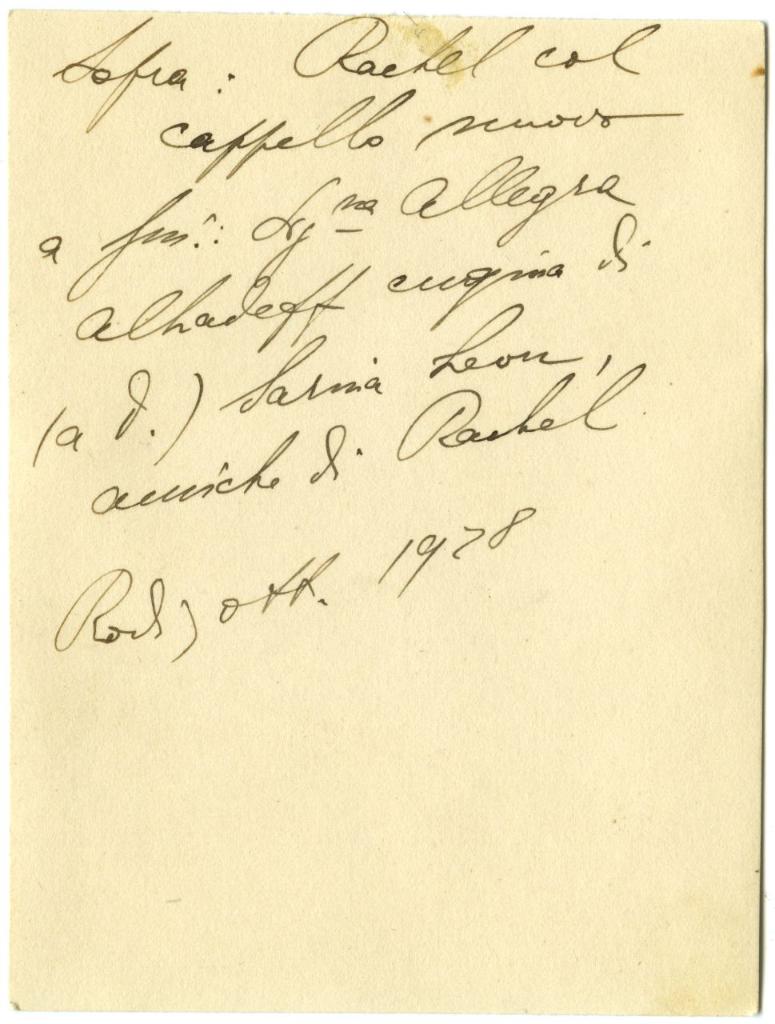 Sopra: Rachel col
cappello nuovo
a sin.: Sig.na Allegra
Alhadeff cugina di
(a d.) Sarina Leon,
amiche di Rachel
Rodi, ott. 1928